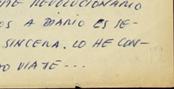 REVOLUCIONARIO
A DIARIO ES SE-
SINCERA. LO HE CON-
VIAJE...